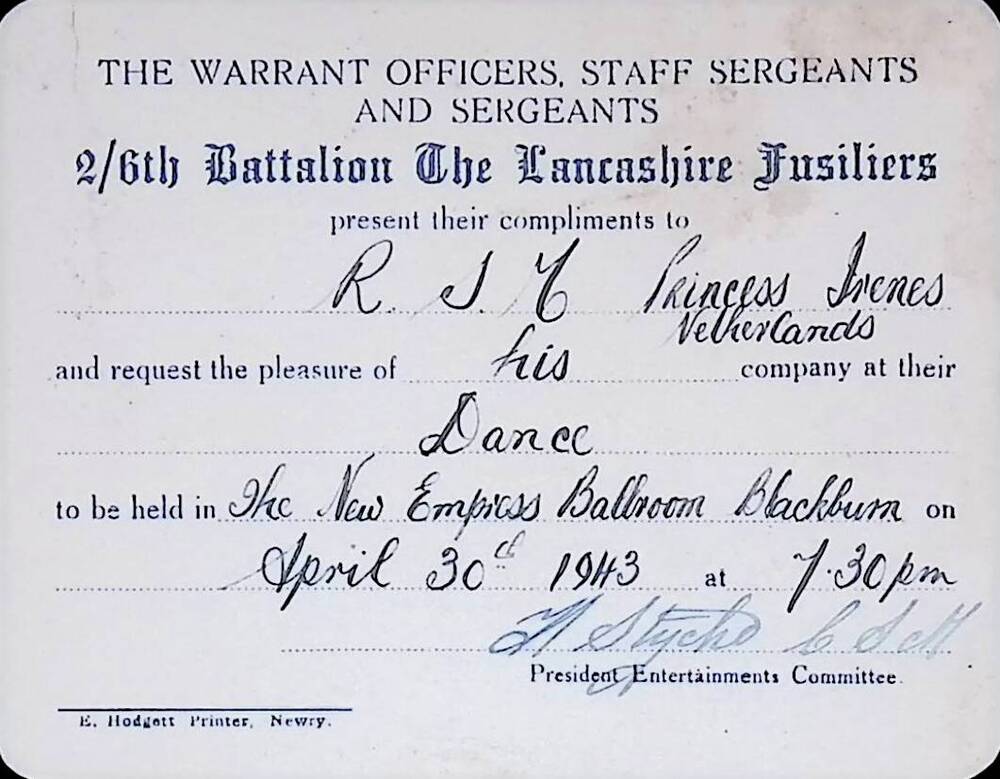 THE WARRANT OFFICERS, STAFF SERGEANTS
AND SERGEANTS
2/6th Battalion The Lancashire Fusiliers
present their compliments to
R. S. M Princess Irenes
Netherlands
and request the pleasure of his company at their
Dance
to be held in The New Empress Ballroom Blackburn on
April 30th 1943 at 7.30 pm
C S M
President Entertainments Committee.
E. Hodgett Printer, Newry.